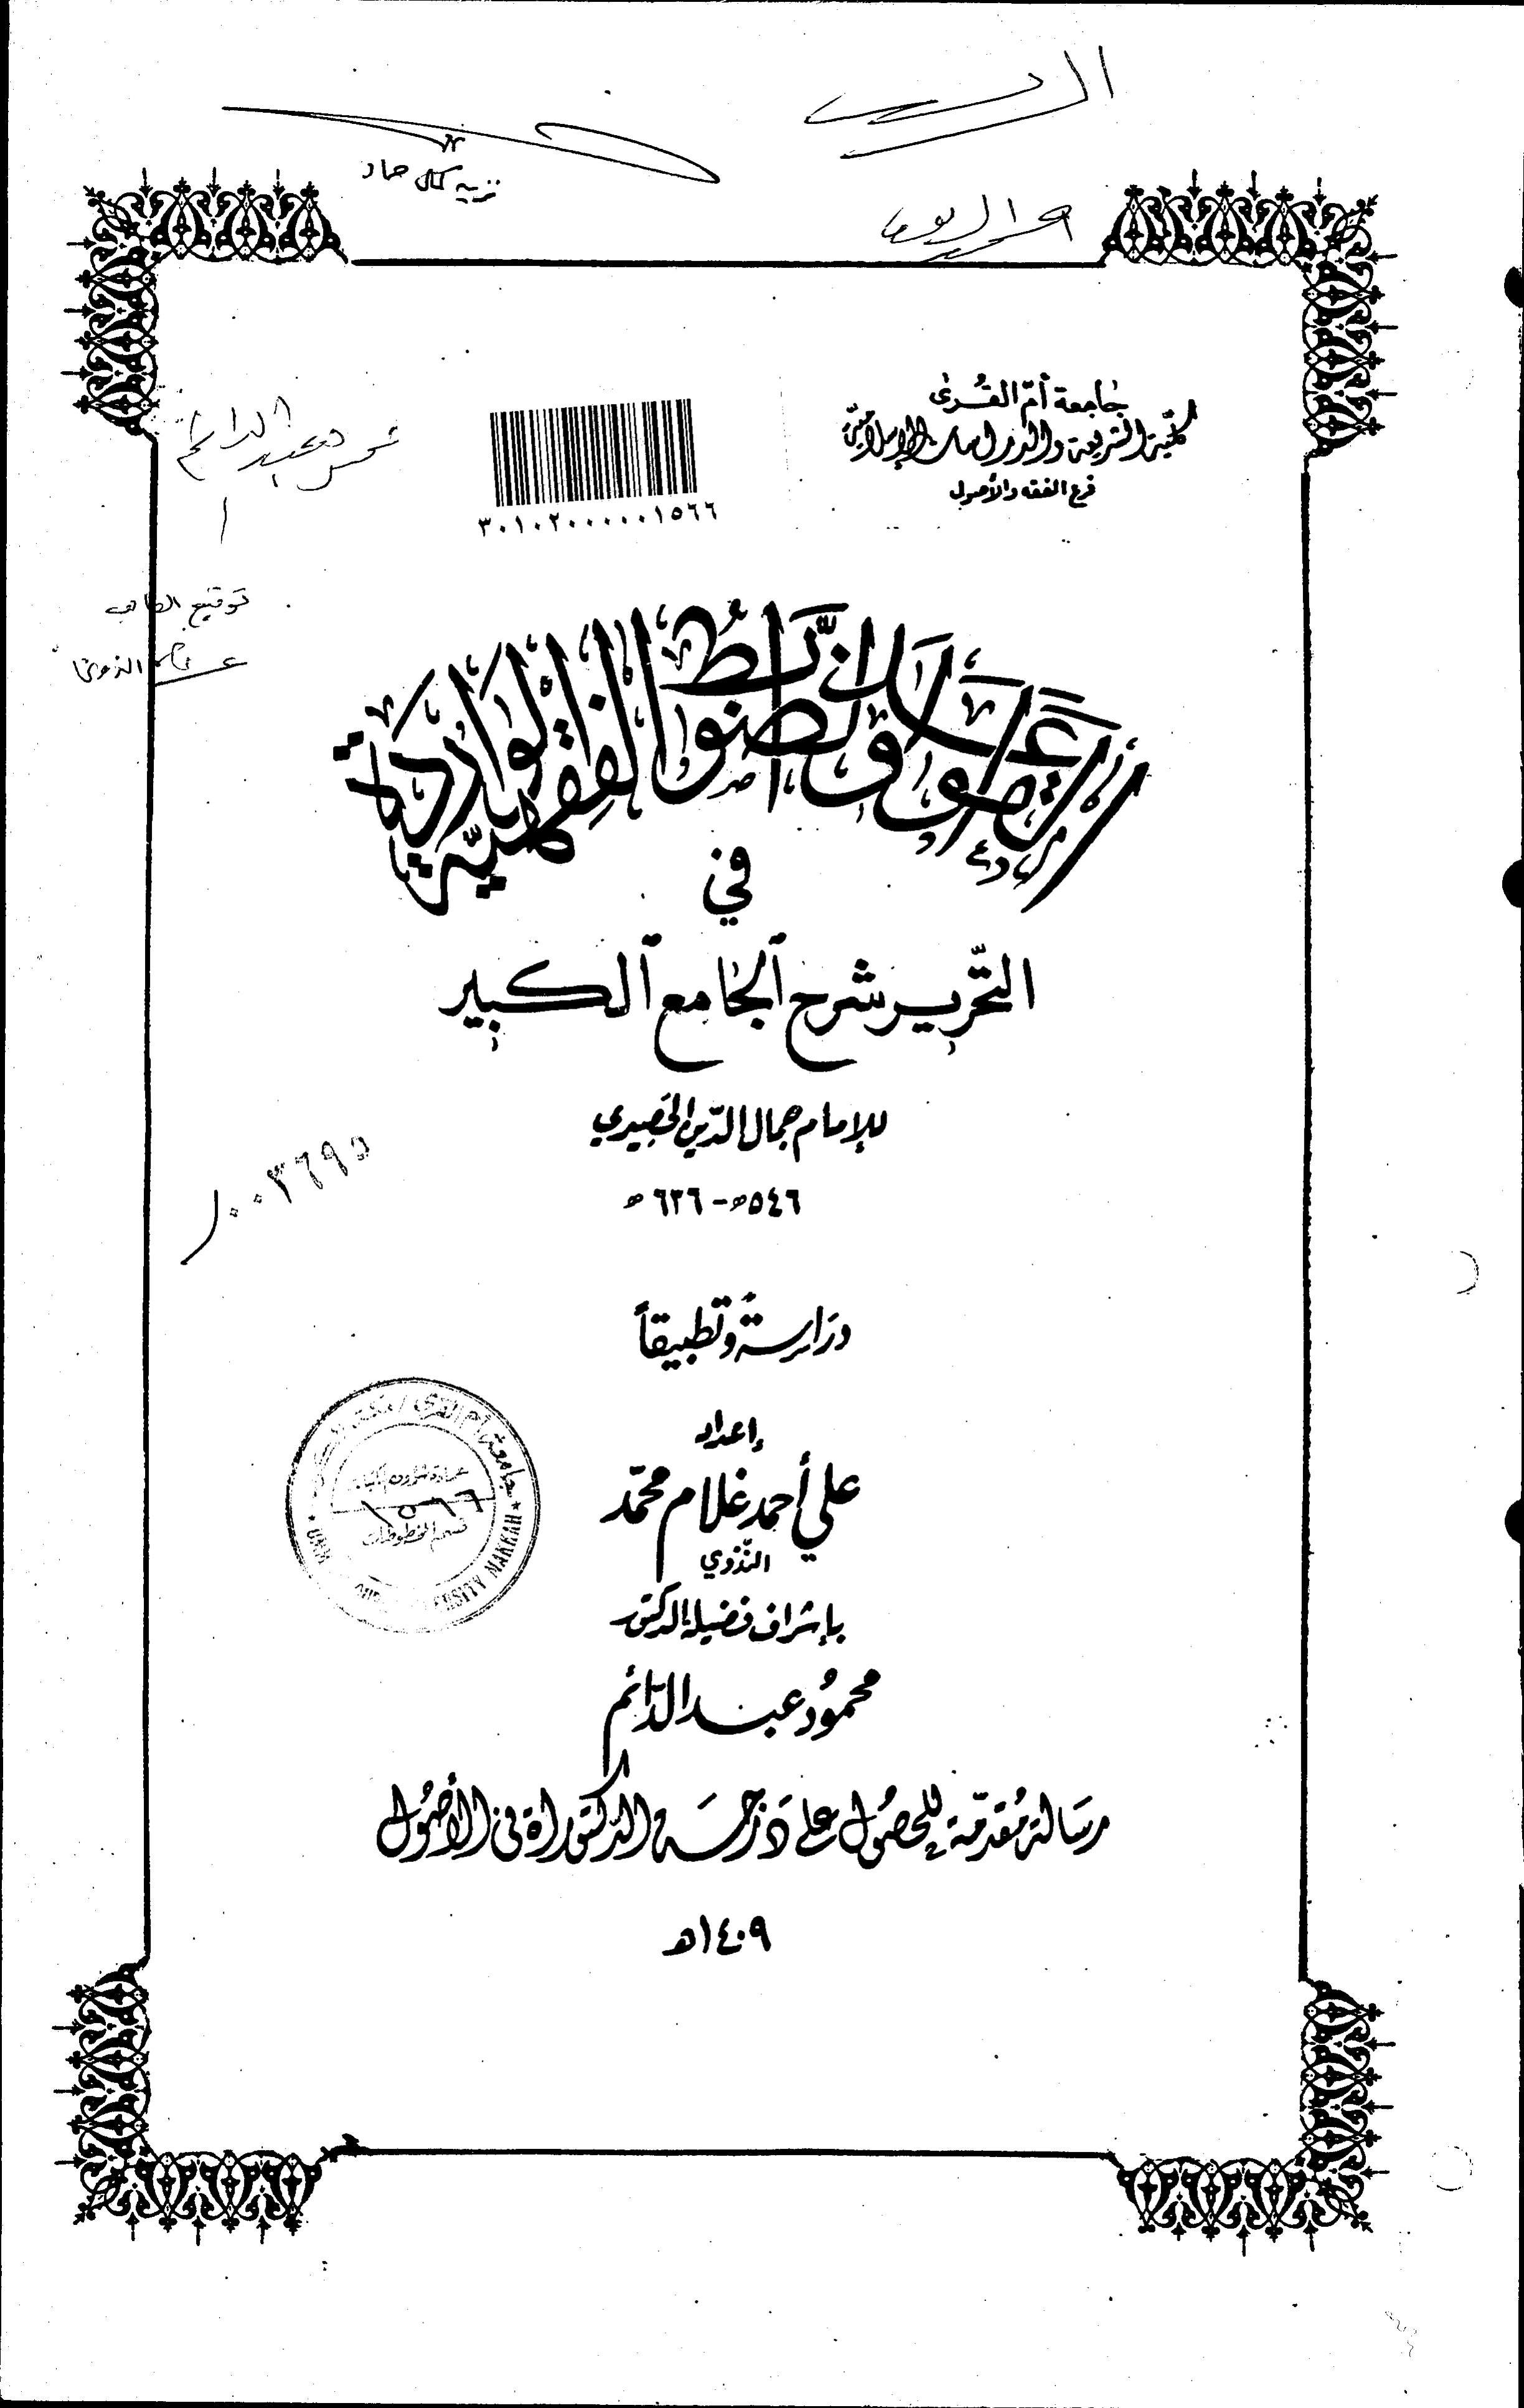 نزيه كمال حماد
جامعة أمّ القُرى
كليّة الشريعة والدراسات الإسلاميّة
فرع الفقه والأصول
٣٠١٠٢٠٠٠٠٠١٥٦٦
توقيع الطالب
القواعد والضوابط الفقهيّة الواردة
في
التّحرير شرح الجامع الكبير
للإمام جمال الدّين الحَصِيري
٥٤٦ه - ٦٣٦ه
١٠٠٣٦٩٥
دِرَاسةً وتَطبيقاً
إعداد
علي أحمد غلام محمّد
النّدوي
بإشراف فضيلة الدكتور
محمُود عبد الدّائم
رسَالة مُقدّمة للحصُول على دَرجَة الدكتوراة في الأصُول
١٤٠٩هـ
١٥٦٦
قسم المخطوطات